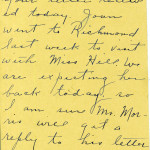 your letter receiv-
ed today Joan
went to Richmond
last week to visit
with Miss Hall. We
are expecting her
back today so
I am sure Mr. Mor-
ris will get a
reply to his letter